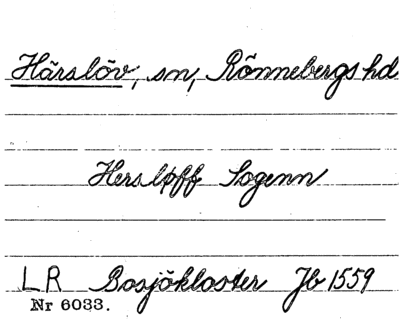 Härslöv, sn, Rönnebergs hd
Hersløff Sogenn
LR Bosjökloster Jb 1559
Nr 6033.